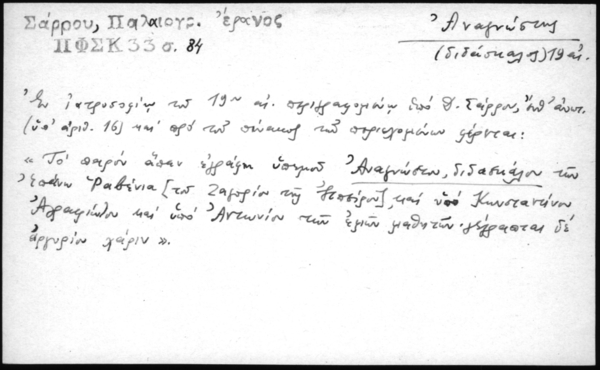 Σάρρου, Παλαιογρ. Ἔρανος
ΠΦΣΚ 33 σ. 84
Ἀναγνώστης
(διδάσκαλος) 19 αἰ.
Ἐν ἰατροσοφίῳ τοῦ 19ου αἰ. περιγραφομένῳ ὑπό Δ. Σάρρου, ἔνθ' ἀνωτ.
(ὑπ' ἀριθ. 16) καί πρό τοῦ πίνακος τοῦ περιεχομένων φέρεται:
« Τό παρόν ἅπαν ἐγράφη ὑπ' ἐμοῦ Ἀναγνώστου, διδασκάλου τῆς
Ἐπάνω Ραβένια [τοῦ Ζαγορίου τῆς Ἠπείρου], καί ὑπό Κωνσταντίνου
καί ὑπό Ἀντωνίου τῶν ἐμῶν μαθητῶν· γέγραπται δέ
ἀργυρίου χάριν ».